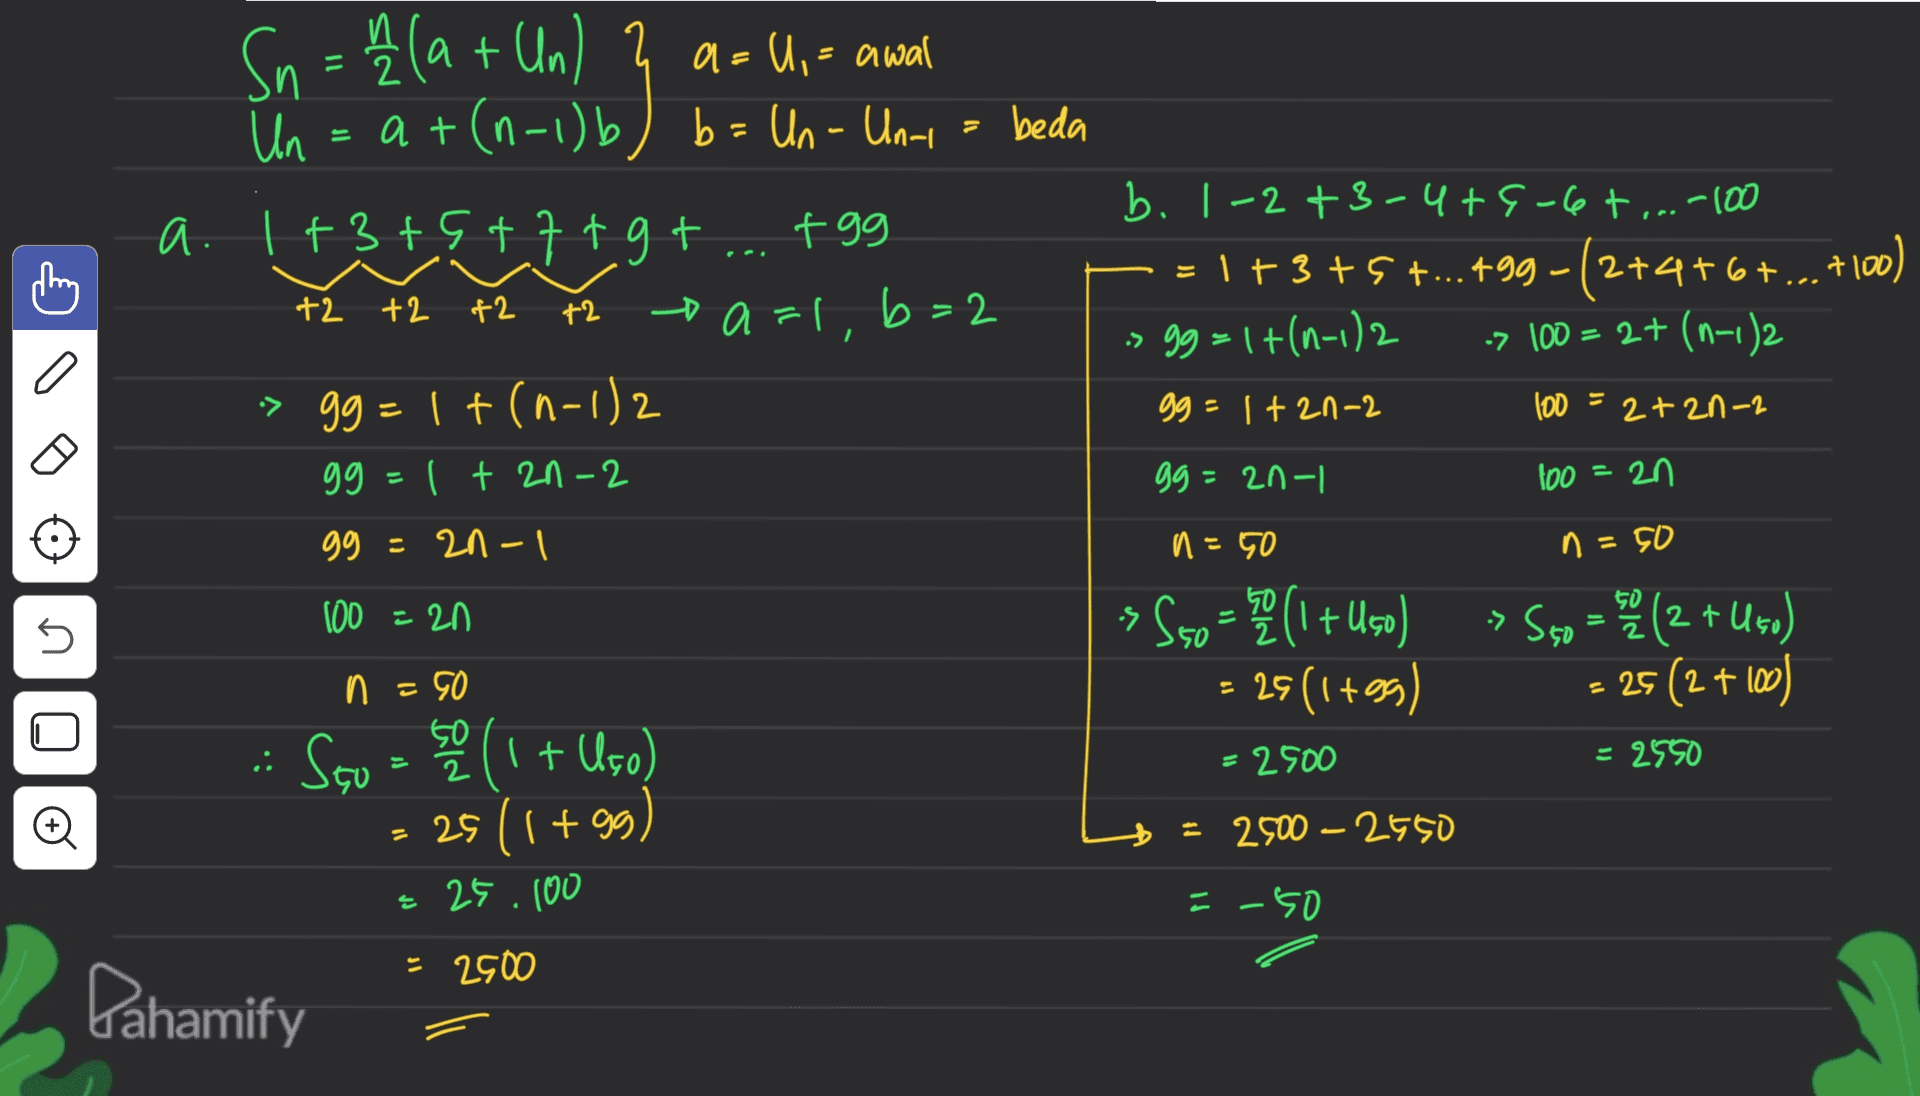 Sn = n/2 (a + Un) } a = U₁ = awal
Un = a + (n-1)b } b = Un - Un-1 = beda
a. 1 + 3 + 5 + 7 + 9 + ... + 99
+2 +2 +2 +2 → a = 1, b = 2
·> 99 = 1 + (n-1)2
99 = 1 + 2n - 2
99 = 2n - 1
100 = 2n
n = 50
∴ S50 = 50/2 (1 + U50)
= 25 (1 + 99)
= 25 . 100
= 2500
b. 1 - 2 + 3 - 4 + 5 - 6 + ... - 100
= 1 + 3 + 5 + ... + 99 - (2 + 4 + 6 + ... + 100)
·> 99 = 1 + (n-1)2
99 = 1 + 2n - 2
99 = 2n - 1
n = 50
·> S50 = 50/2 (1 + U50)
= 25 (1 + 99)
= 2500
·> 100 = 2 + (n-1)2
100 = 2 + 2n - 2
100 = 2n
n = 50
·> S50 = 50/2 (2 + U50)
= 25 (2 + 100)
= 2550
→ = 2500 - 2550
= -50
Pahamify